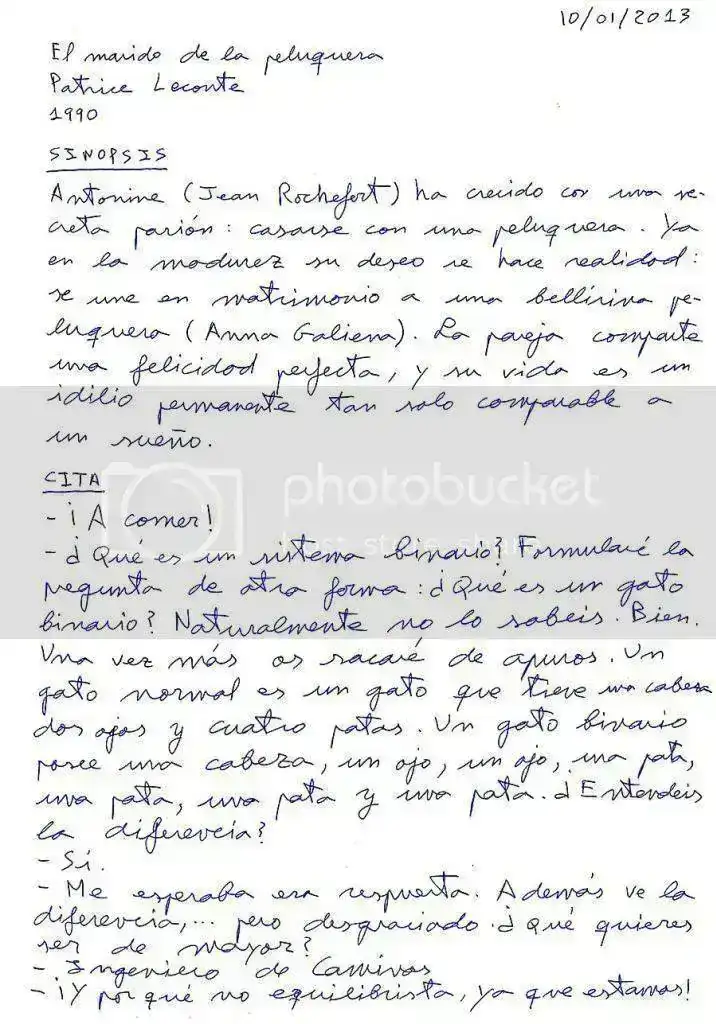 10/01/2013
El marido de la peluquera
Patrice Leconte
1990
SINOPSIS
Antonine (Jean Rochefort) ha crecido con una se-
creta pasión: casarse con una peluquera. Ya
en la madurez su deseo se hace realidad:
se une en matrimonio a una bellísima pe-
luquera (Anna Galiena). La pareja comparte
una felicidad perfecta, y su vida es un
idilio permanente tan solo comparable a
un sueño.
CITA
- ¡A comer!
photobucket
host. store. share.
- ¿Qué es un sistema binario? Formularé la
pregunta de otra forma: ¿Qué es un gato
binario? Naturalmente no lo sabeis. Bien.
Una vez más os sacaré de apuros. Un
gato normal es un gato que tiene una cabeza
dos ojos y cuatro patas. Un gato binario
posee una cabeza, un ojo, un ojo, una pata,
una pata, una pata y una pata. ¿Entendeis
la diferencia?
- Sí.
- Me esperaba esa respuesta. Además ve la
diferencia,... pero desgraciado ¿Qué quieres
ser de mayor?
- Ingeniero de Caminos
- ¡Y por qué no equilibrista, ya que estamos!